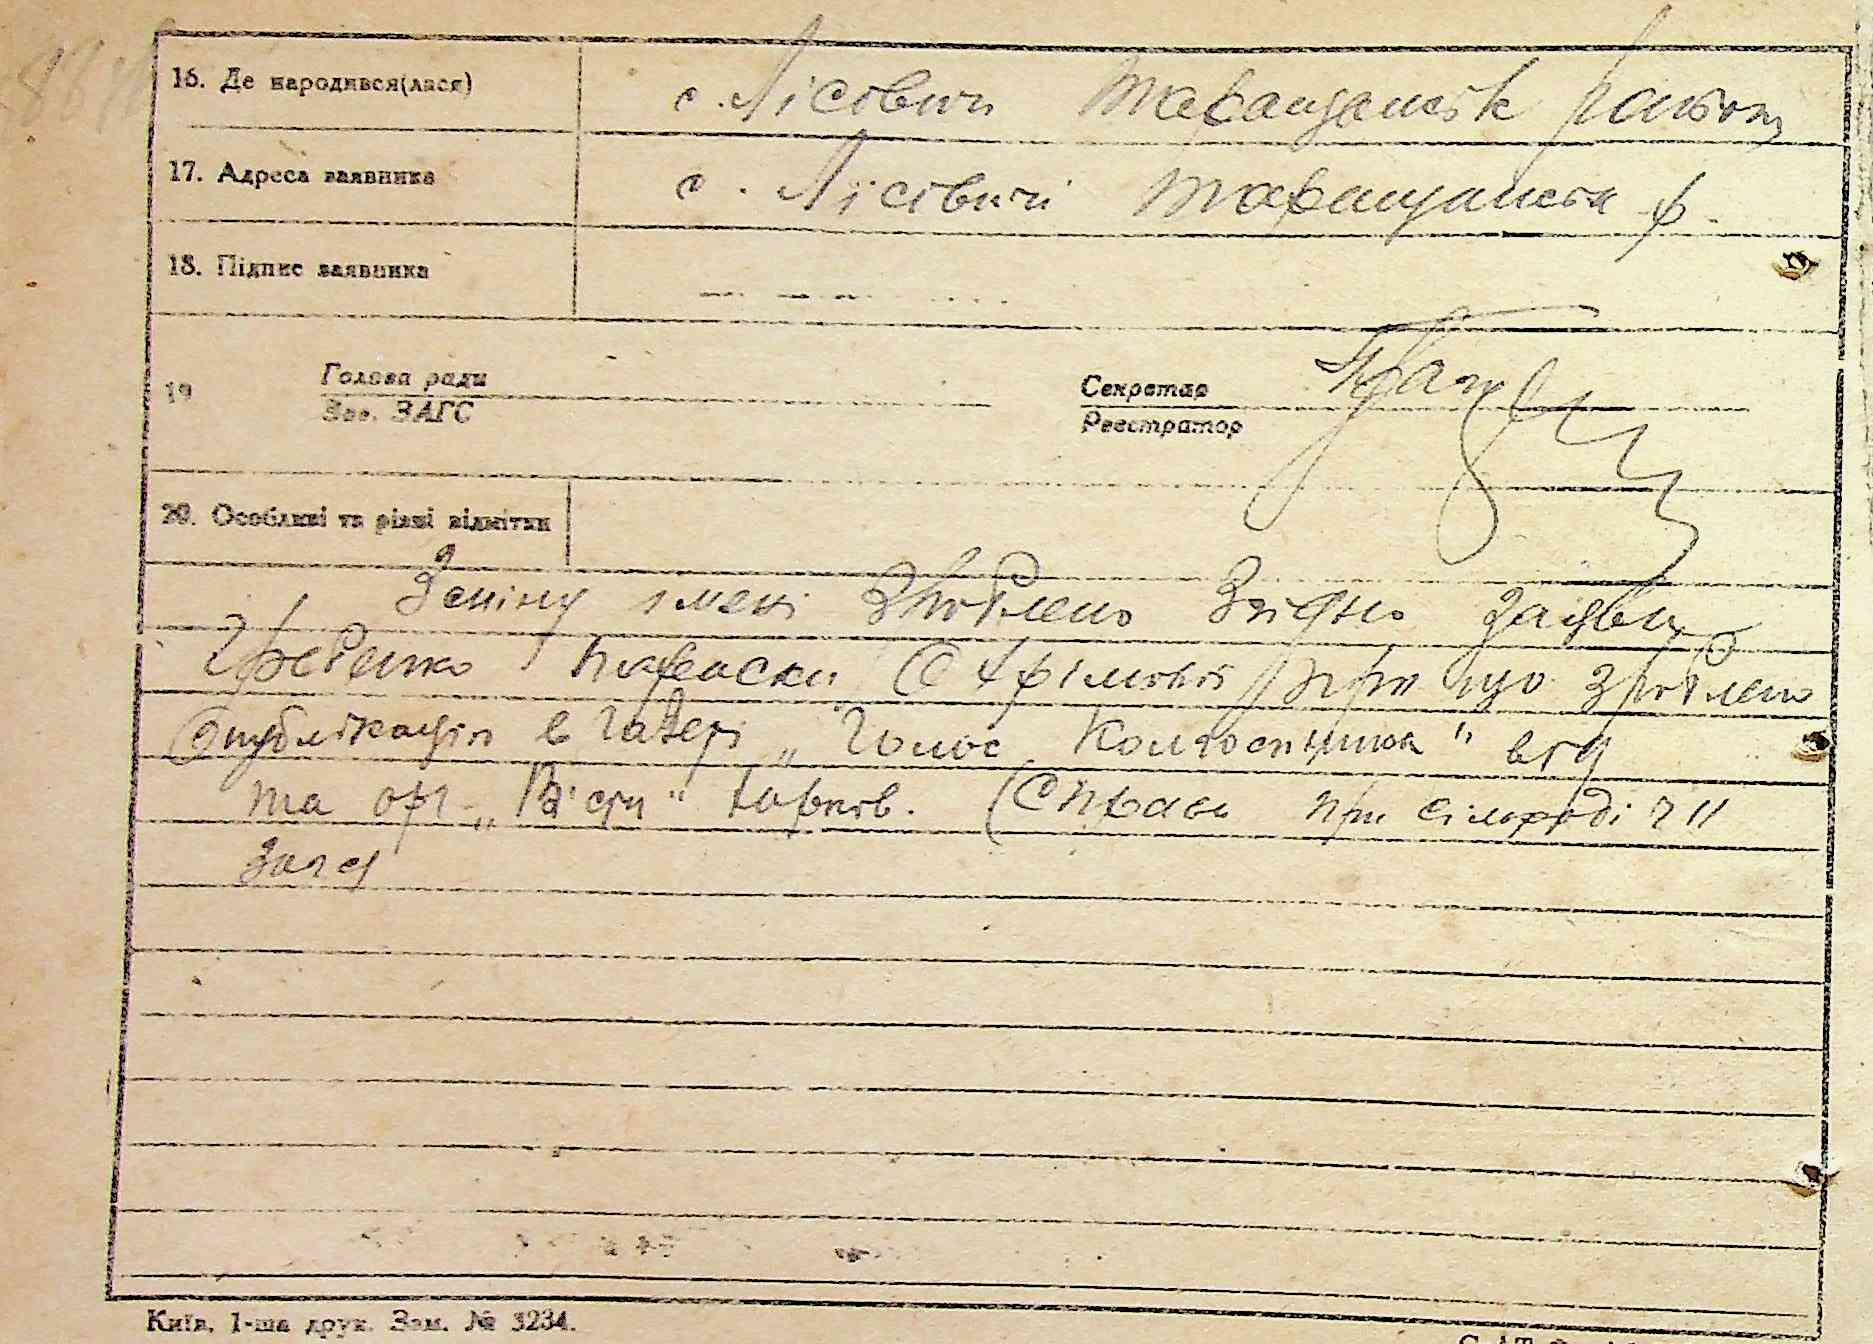 16. Де народився(лася) с. Лісовичі Таращанськ район
17. Адреса заявника с. Лісовичі Таращанськ р.
18. Підпис заявника
19 Голова ради Секретар
Зав. ЗАГС Реєстратор
20. Особливі та різні відмітки
Заміну імені Зроблено Згідно заяви
Гребенко Параски Єфрімової при що зроблено
Опублікацію в газеті „Голос Колгоспника"
та орг. „Вісти" Харків. (Справа при сільраді
Київ, 1-ша друк. Зам. № 3234.